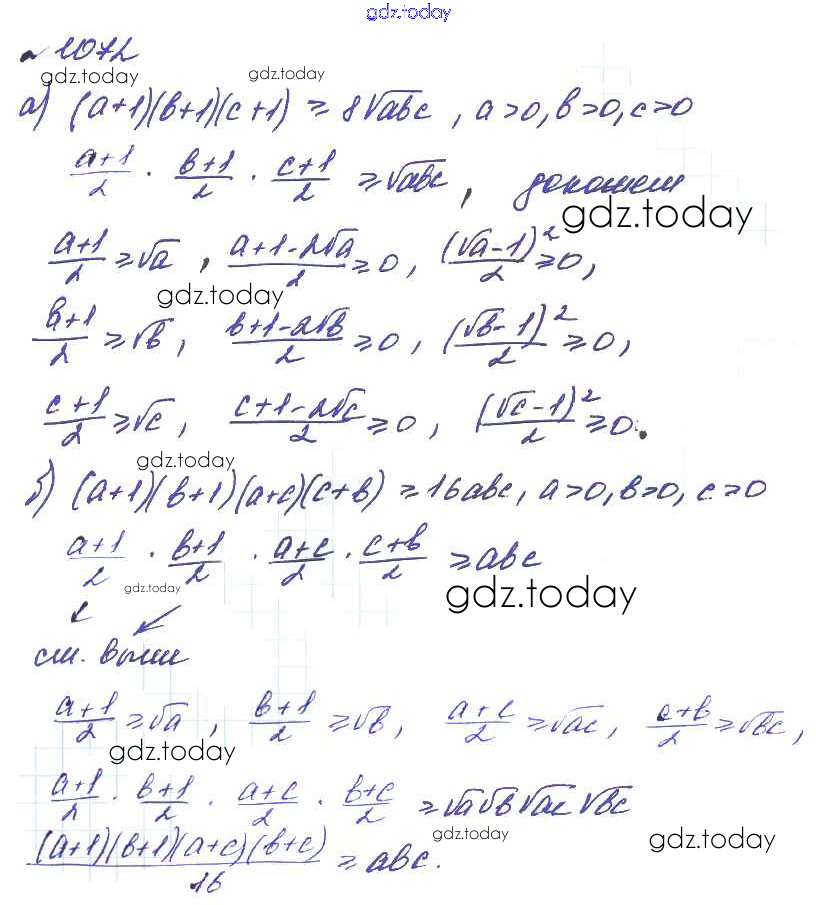 gdz.today
№ 1072
gdz.today gdz.today
а) (a+1)(b+1)(c+1) ≥ 8√abc, a>0, b>0, c>0
(a+1)/2 · (b+1)/2 · (c+1)/2 ≥ √abc, докажем
gdz.today
(a+1)/2 ≥ √a, (a+1-2√a)/2 ≥ 0, (√a-1)²/2 ≥ 0,
gdz.today
(b+1)/2 ≥ √b, (b+1-2√b)/2 ≥ 0, (√b-1)²/2 ≥ 0,
(c+1)/2 ≥ √c, (c+1-2√c)/2 ≥ 0, (√c-1)²/2 ≥ 0.
gdz.today
б) (a+1)(b+1)(a+c)(c+b) ≥ 16abc, a>0, b>0, c>0
(a+1)/2 · (b+1)/2 · (a+c)/2 · (c+b)/2 ≥ abc
gdz.today gdz.today
см. выше
(a+1)/2 ≥ √a, (b+1)/2 ≥ √b, (a+c)/2 ≥ √ac, (c+b)/2 ≥ √bc,
gdz.today
(a+1)/2 · (b+1)/2 · (a+c)/2 · (b+c)/2 ≥ √a√b√ac√bc
gdz.today gdz.today
(a+1)(b+1)(a+c)(b+c)/16 ≥ abc.